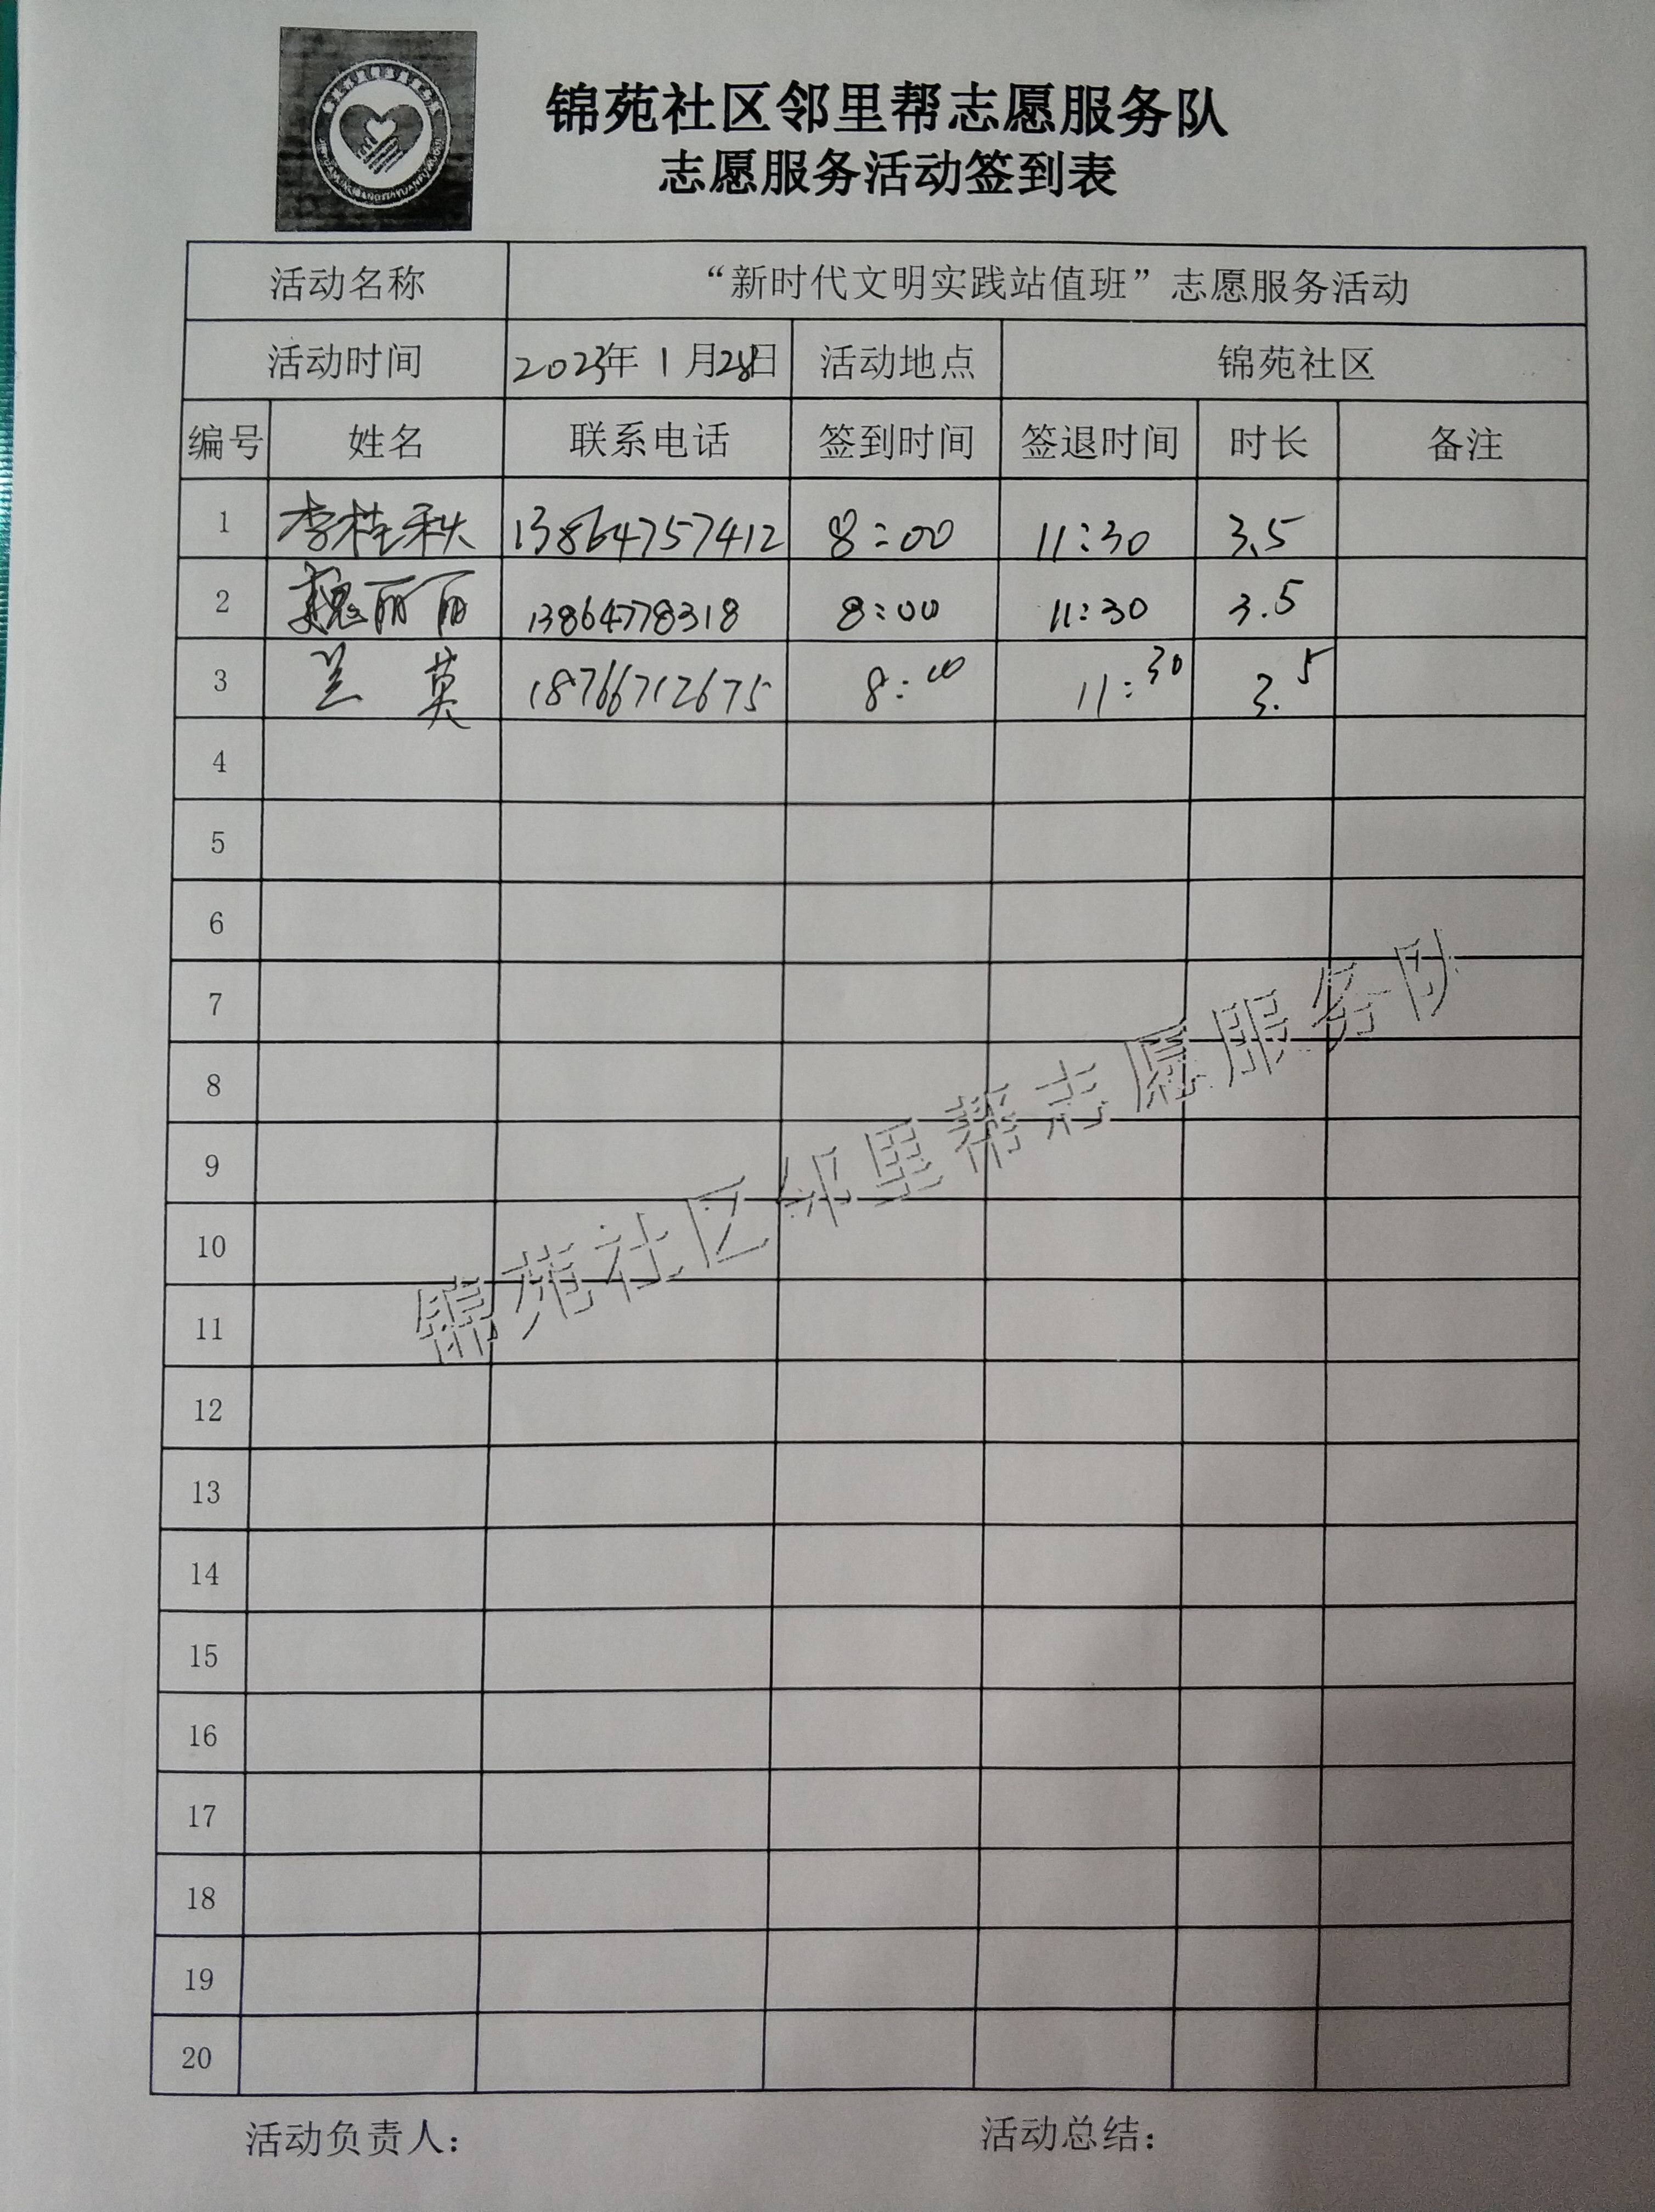 锦苑社区邻里帮志愿服务队
志愿服务活动签到表
活动名称 “新时代文明实践站值班”志愿服务活动
活动时间 2023年 1月28日 活动地点 锦苑社区
编号 姓名 联系电话 签到时间 签退时间 时长 备注
1 李桂秋 13864757412 8:00 11:30 3.5
2 魏丽丽 13864778318 8:00 11:30 3.5
3 兰英 18766712675 8:00 11:30 3.5
4
5
6
7
8
9
10
11
12
13
14
15
16
17
18
19
20
锦苑社区邻里帮志愿服务队
活动负责人： 活动总结：